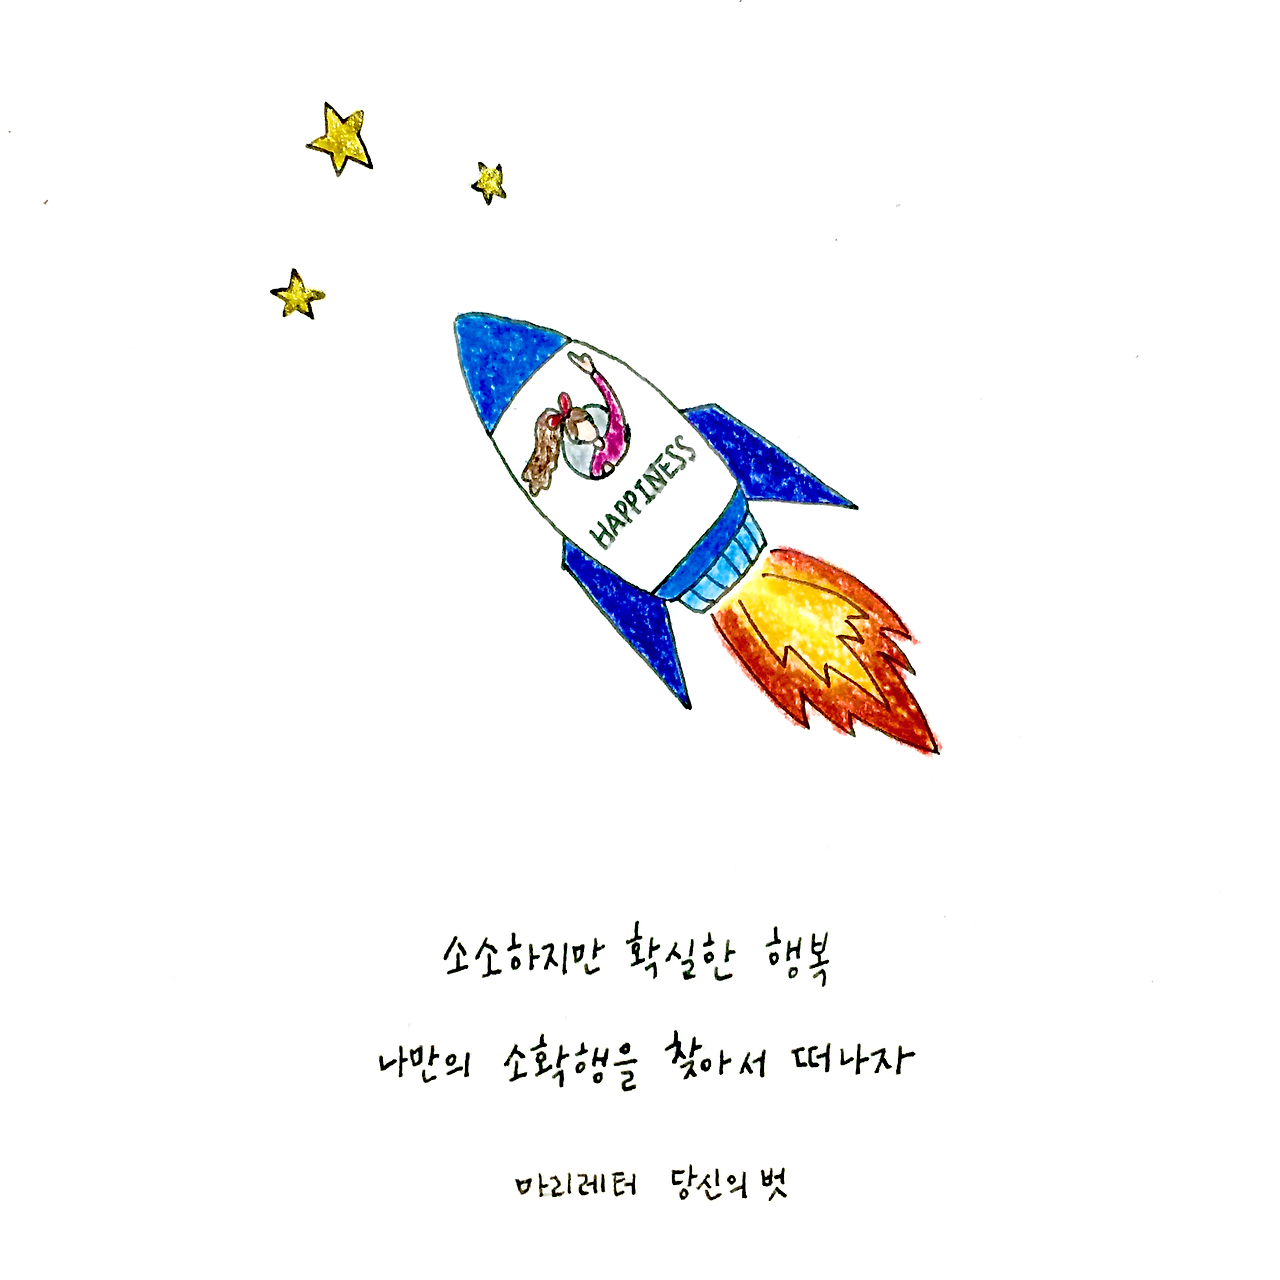 HAPPINESS
소소하지만 확실한 행복
나만의 소확행을 찾아서 떠나자
마리레터 당신의 벗